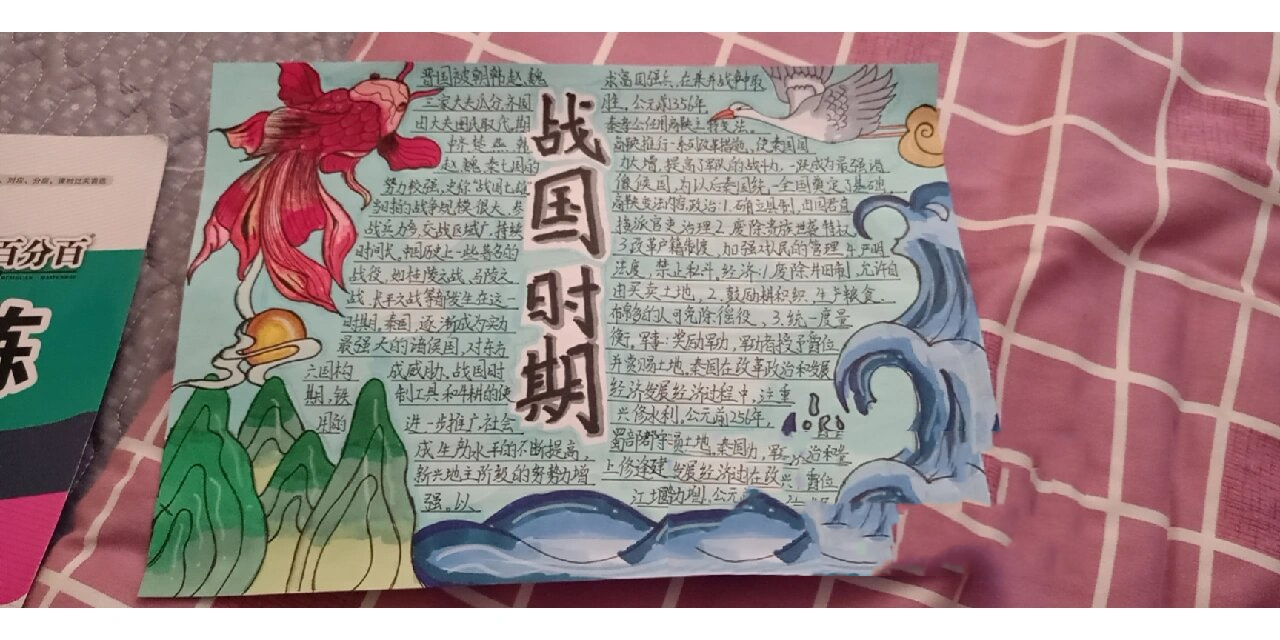 对应、分层、课时过关首选
百分百
练
战国时期
晋国被朝韩赵、魏
三家大夫瓜分,齐国
由大夫田氏取代,期
赵、魏、秦七国的
努力较强,史称"战国七雄
战争规模很大,
战兵力多,交战区域广,持续
时间长,中国历史上一些著名的
战役,如桂陵之战、马陵之
战、长平之战等都发生在这一
时期,秦国,逐渐成为实力
最强大的诸侯国,对东方
六国构 成威胁、战国时
期,铁 制工具和牛耕的使
用的 进一步推广,社会
成生动水平的不断提高,
新兴地主阶级的努势力增
强。以
求富国强兵,在兼并战争中取
胜,公元前356年,
秦孝公任用商鞅主持变法。
商鞅推行一系列改革措施、使秦国国
力大增,提高了军队的战斗力,一跃成为最强诸
侯国,为以后秦国统一全国奠定了基础,
商鞅变法内容,政治:1.确立县制,由国君直
接派官吏治理2.废除贵族世袭特权
3.改革户籍制度,加强对民的管理4.严明
法度,禁止私斗,经济:1.废除井田制,允许自
由买卖土地,2.鼓励耕织,生产粮食、
布帛多的人可免除徭役,3.统一度量
衡,军事:奖励军功,军功者授予爵位
并赏汤土地,秦国在改革政治和发展
经济发展经济过程中,注重
兴修水利。公元前256年,
蜀部郡守汤土地,秦国力,
上修逢建 发展经济过在改兴 爵位